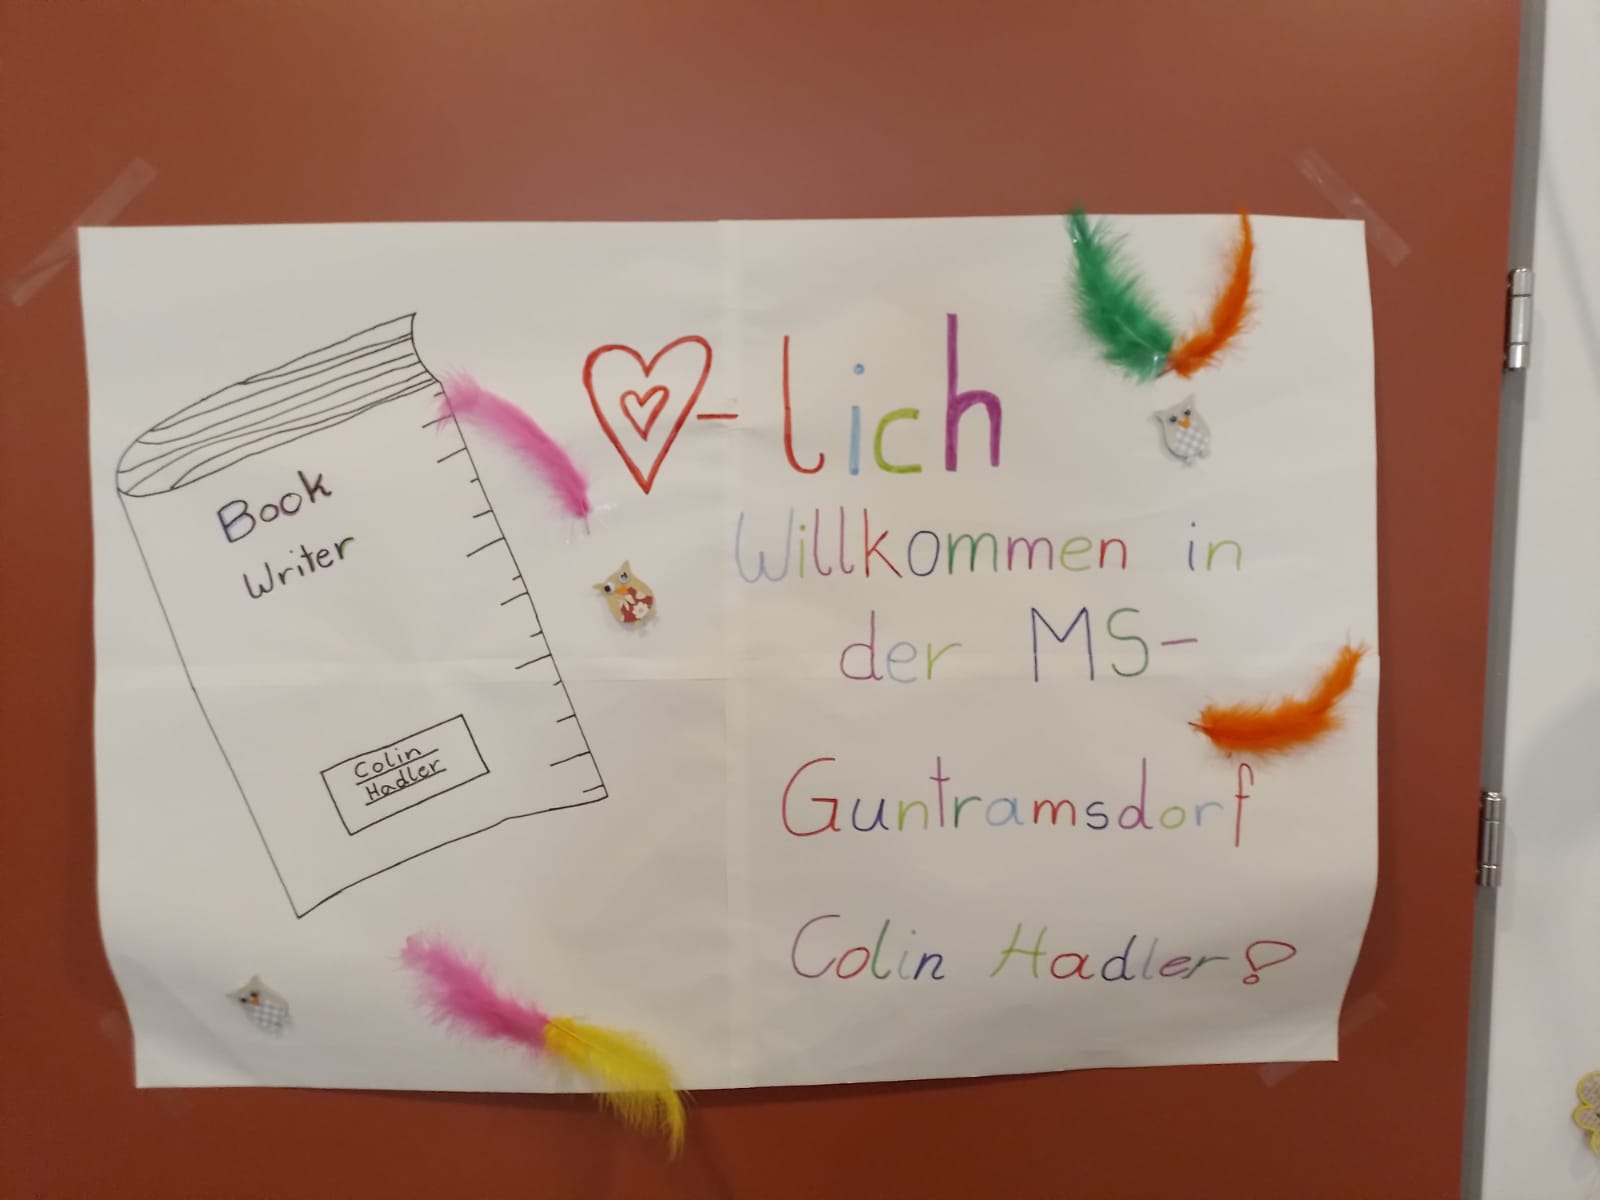 Book
Writer
Colin
Hadler
-lich
Willkommen in
der MS-
Guntramsdorf
Colin Hadler!